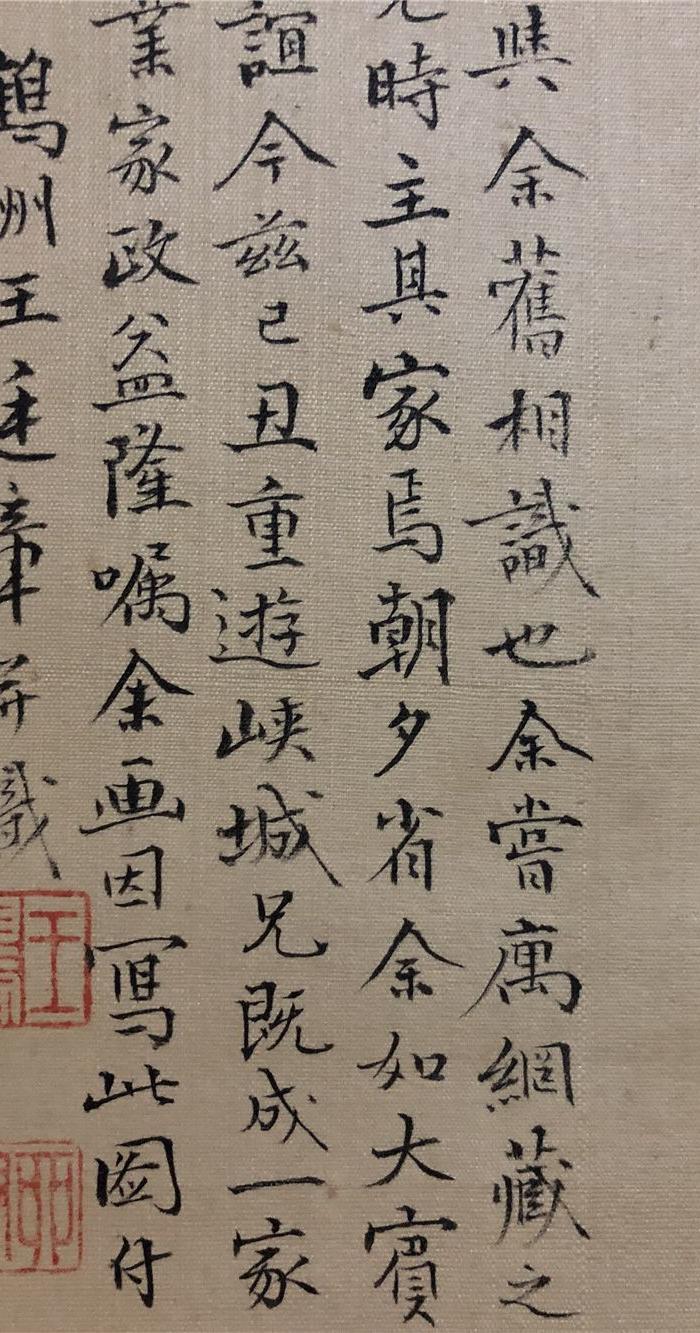 與余舊相識也余嘗寓網藏之
時主具家焉朝夕省余如大賓
誼今茲己丑重遊峽城兄既成一家
業家政益隆囑余画因寫此圖付
鶴州王廷章并識
王